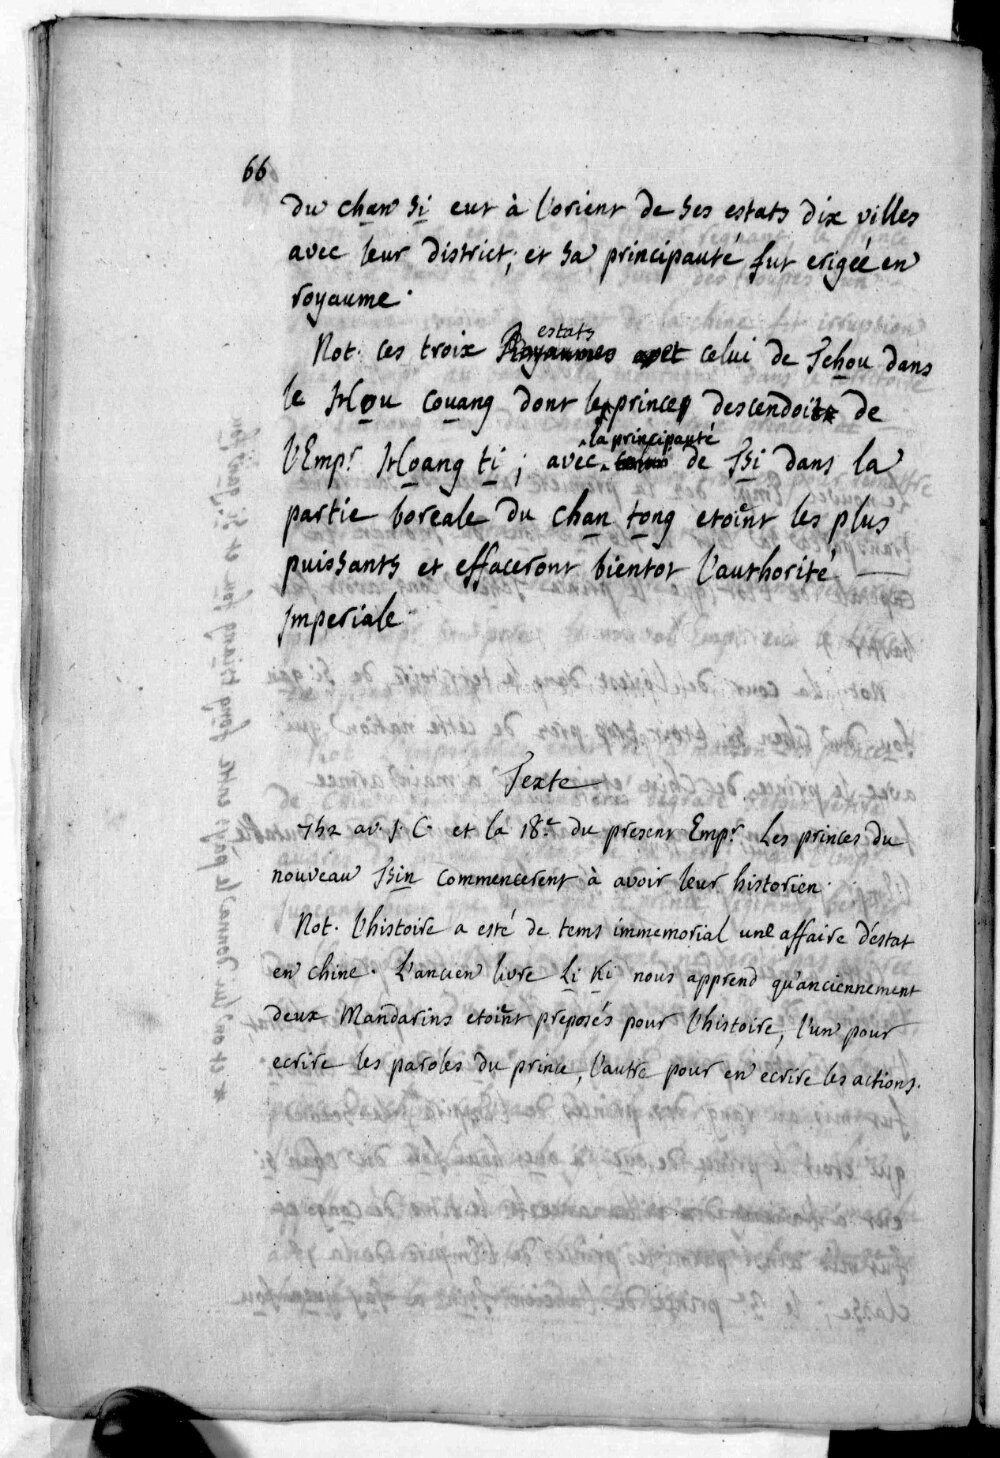 66
du chan si eut à l'orient de ses estats dix villes
avec leur district; et sa principauté fut erigéé en
royaume.
Not. ces troix estats et celui de Tchou dans
le Hou couang dont le prince descendoit de
l'Emp.r Hoang ti; avec la principauté de Tsi dans la
partie boreale du chan tong etoient les plus
puissants et effaceront bientot l'authorité
jmperiale.
Texte
752 av. J. C. et la 18.e du present Emp.r Les princes du
nouveau Tsin commencerent à avoir leur historien.
Not. l'histoire a esté de tems immemorial une affaire d'estat
en chine. L'ancien livre Li Ki nous apprend qu'anciennement
deux Mandarins etoient preposés pour l'histoire, l'un pour
ecrire les paroles du prince, l'autre pour en ecrire les actions.